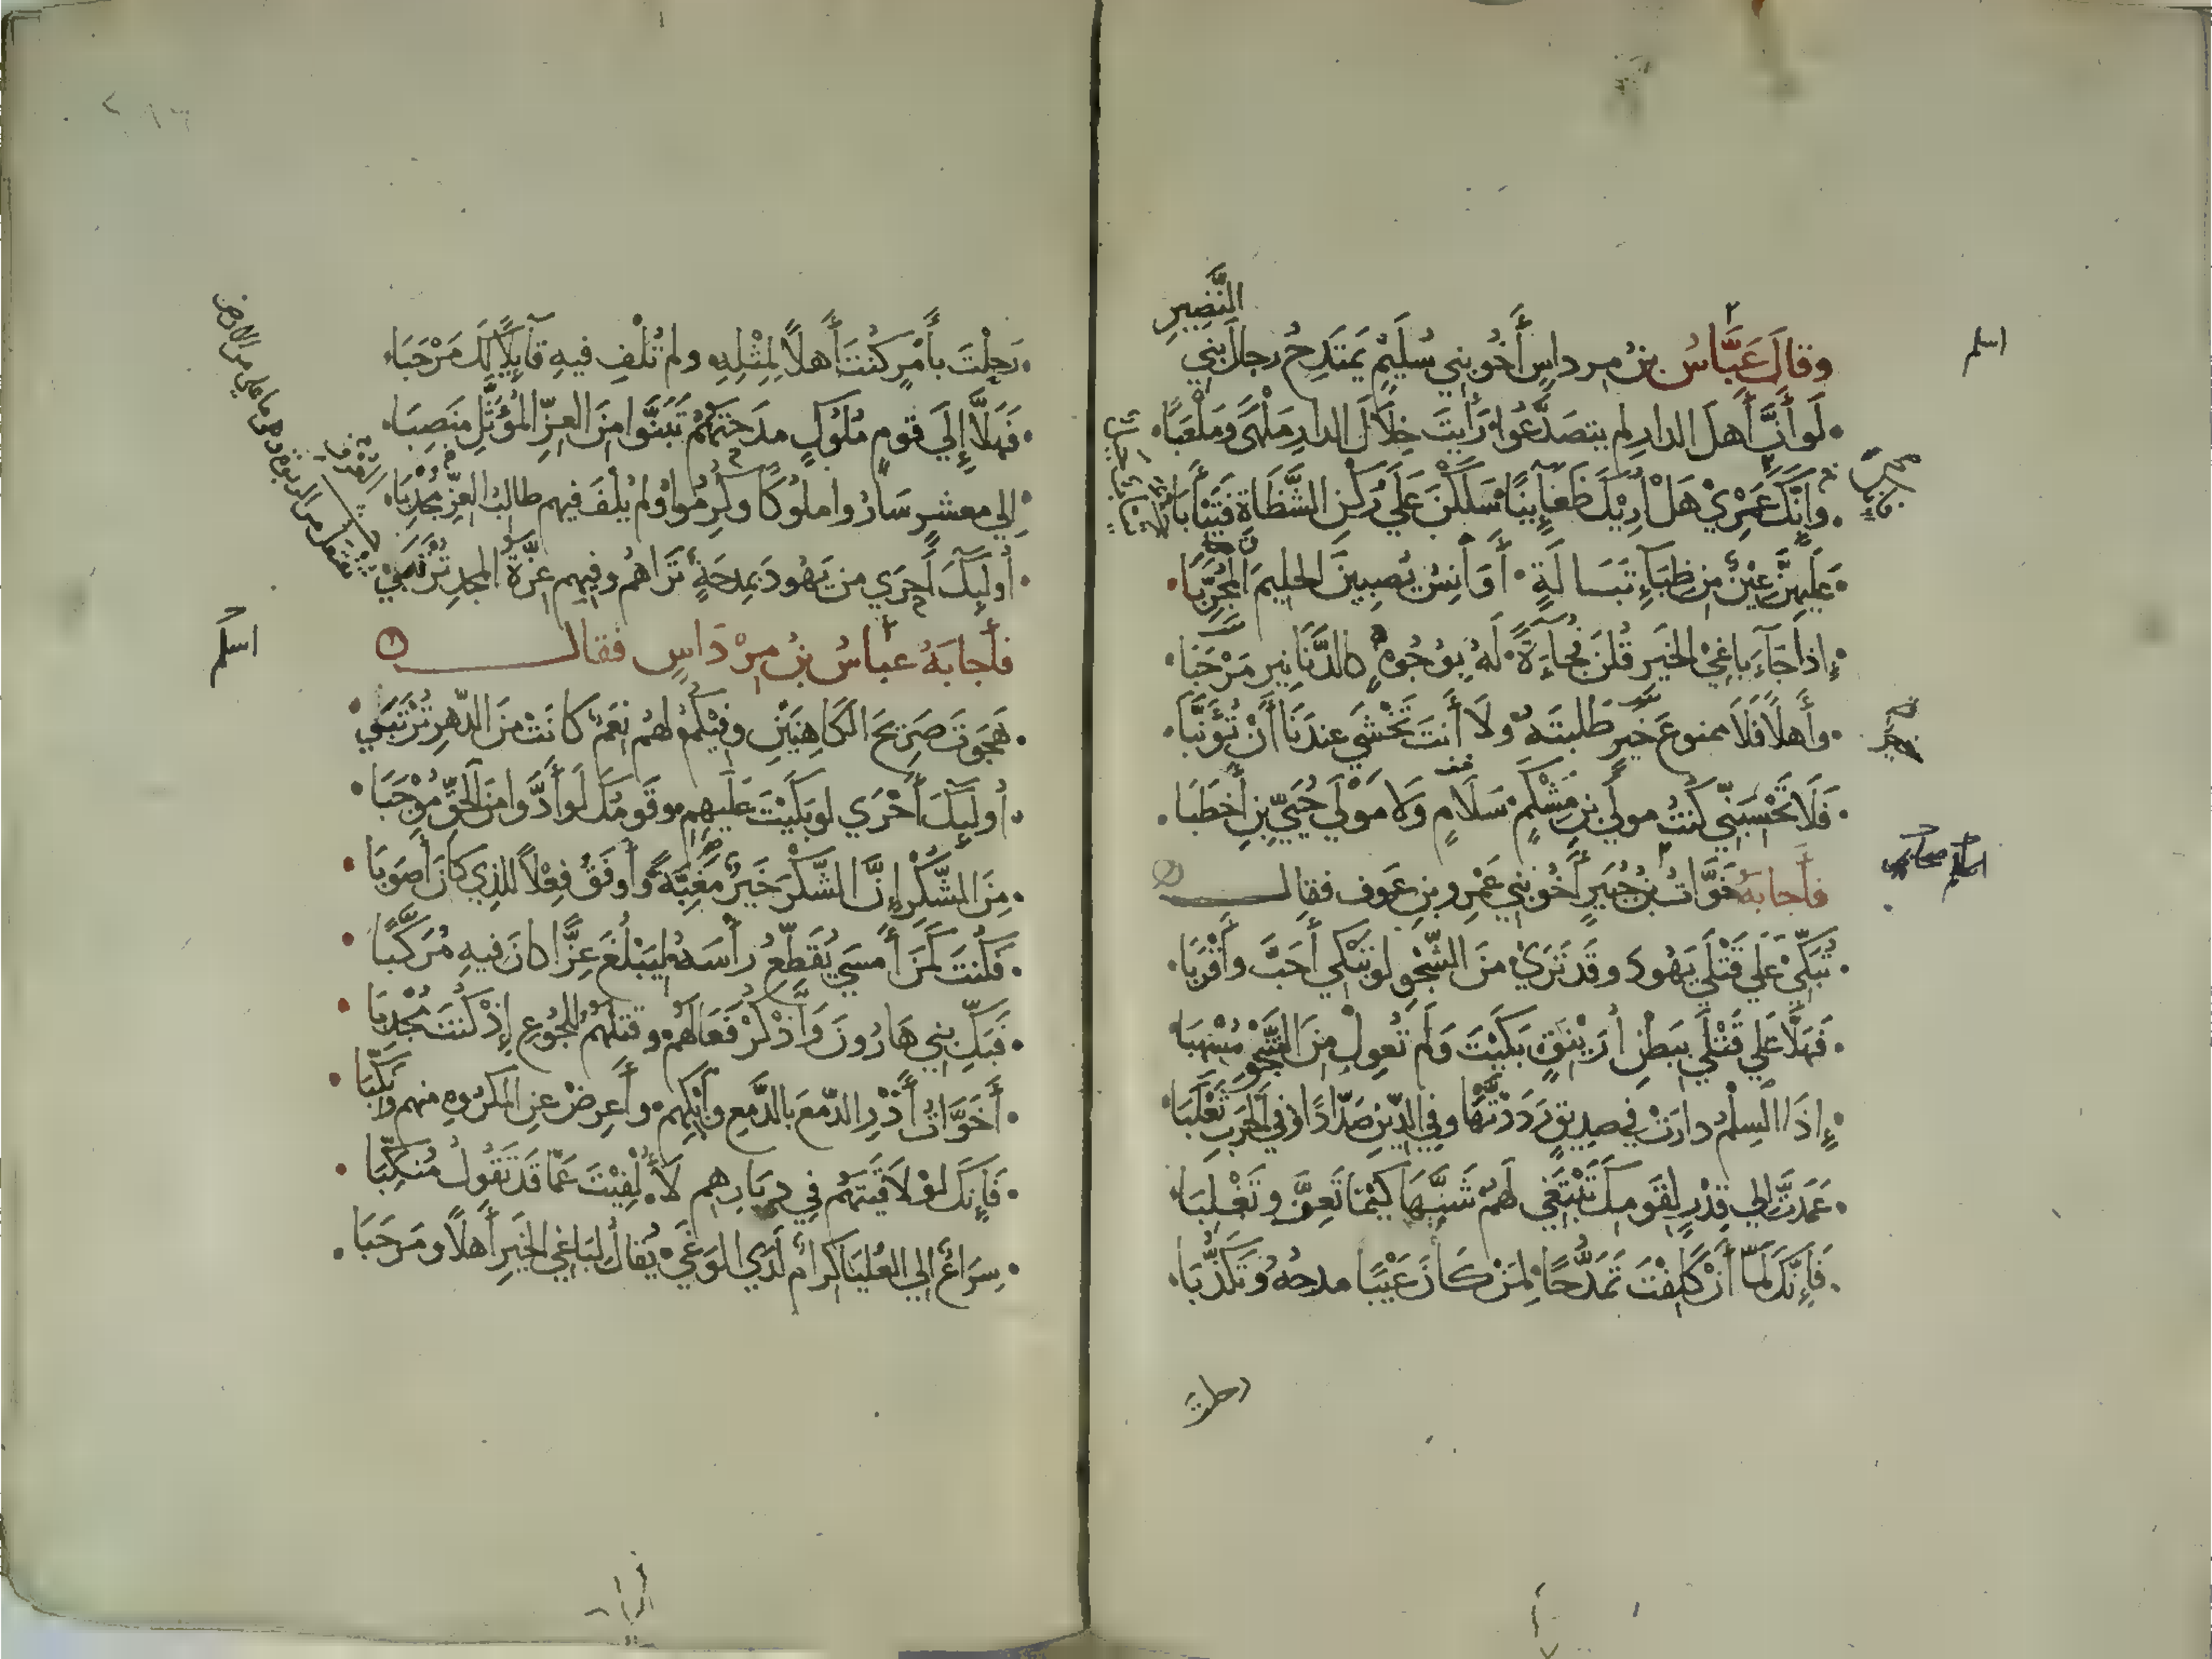 وقالَ عَبَّاسُ بنُ مِرداسٍ أَخُو بني سُلَيْمٍ يَمتَدِحُ رجالَ بَنِي
النَّضِيرِ
لَو أَنَّ أَهلَ الدارِ لم يتصَدَّعُوا رَأيتَ خِلَالَ الدارِ مَلْهًى ومَلْعَبًا
وإنَّكَ عَمْرِيْ هَلْ أُرِيكَ ظَعَايِنًا سَلَكْنَ عَلَى رُكْنِ الشَّظَاةِ فَتَيْأَبَا
عَلَيهِنَّ عِيْنٌ مِن ظِبَآءِ تَبَالَةٍ أَوَانِسُ يُصبِينَ الحليمَ المُجَرَّبَا
إذا جَآءَ باغِيْ الخَيرِ قُلنَ فُجَآءَةً لَهُ بوُجُوهٍ كالدَّنَانِيرِ مَرْحَبَا
وأَهلًا فَلَا ممنوعَ خَيرٍ طَلَبتَهُ ولَا أنتَ تَخْشَي عندَنَا أَنْ تُؤَنَّبَا
فَلَا تَحْسَبَنِّي كُنتُ مولَى بنِ مِشْكَمٍ سَلَامٍ وَلَا مَوْلَي حُيَيِّ بنِ أَخطَبَا
فأَجابَهُ خَوَّاتُ بنُ جُبَيرٍ أَخُو بَنِي عَمْرِو بنِ عَوفٍ فقال
تُبَكِّي عَلَي قَتْلَي يَهُودَ وقَد تَرَيْ منَ الشَّجْوِ لو تَبْكي أَحَبَّ وأَقْرَبَا
فَهَلَّا عَلَي قَتْلَي بِبَطْنِ أُرَيْنِقٍ بَكَيْتَ وَلَم تُعوِلْ مِنَ الشَّجْوِ مُسْهِبَا
إِذَا السِلْمُ دارَتْ في صديقٍ رَدَدْتَّهَا وفي الدِّينِ صَدَّادًا وفي الحَربِ ثَعْلَبَا
عَمَدتَّ إلي قِدْرٍ لِقَومِكَ تَبْتَغِي لَهُم شَبَهًا كَيْمَا تَعِزَّ وتَغْلِبَا
فَإِنَّكَ لَمَّا أَنْ كَلِفْتَ تَمَدُّحًا لِمَنْ كَانَ عَيْبًا مدحُهُ وتَكَذُّبَا
رحلت
رَحَلْتَ بأَمْرٍ كُنتَ أَهلًا لِمِثْلِهِ ولم تُلْفِ فيهِ قَآئِلًا لَكَ مَرْحَبَا
فَهَلَّا إِلَي قومٍ مُلُوكٍ مَدَحتَهُم تَبَنَّوا مِنَ العِزِّ المُؤَثَّلِ مَنصِبَا
إلي معشرٍ سَارُوا ملُوكًا وكُرِّمُوا ولم يُلْفَ فيهم طالبُ العِزِّ مُجْدِبَا
أُولَئِكَ أَحرَي من يَهُودَ بِمِدحَةٍ تَرَاهُم وفِيهِم عِزَّةُ المجدِ تُرْتَبَي
اسلم
فأَجابَهُ عباسُ بنُ مِرْدَاسٍ فقال
هَجَوتَ صَرِيحَ الكَاهِنَيْنِ وفيكُمُ لهُم نِعَمٌ كانَتْ منَ الدَّهرِ تُرْتَبَي
أُولَئِكَ أَحْرَي لو بَكَيْتَ عَلَيهِم وقَومُكَ لَو أَدَّوا منَ الحَقِّ مُوجَبَا
مِنَ الشُّكْرِ إِنَّ الشُّكْرَ خَيرٌ مَغَبَّةً وأَوفَقُ فِعْلًا للذِي كانَ أَصوَبَا
فكُنتَ كَمَن أَمسَي يُقَطِّعُ رَأْسَهُ ليَبْلُغَ عِزًّا كانَ فيهِ مُرَكَّبَا
فَبَكِّ بني هَارُونَ وَاذْكُرْ فَعَالَهُم وقَتلَهُم للجُوعِ إذْ كُنتَ مُجْدِبَا
أَخَوَّاتُ أَذْرِ الدَّمعَ بالدَّمعِ وابْكِهِم وأَعرِضْ عنِ المكرُوهِ منهم ونَكِّبَا
فَإِنَّكَ لو لَاقَيتَهُم في دِيَارِهِم لَأُلْفِيْتَ عَمَّا قَد تَقُولُ مُنَكِّبَا
سِرَاعٌ إلي العُليَا كِرامٌ لَدَي الوَغَي يُقالُ لبَاغِي الخَيرِ أَهلًا ومَرحَبَا